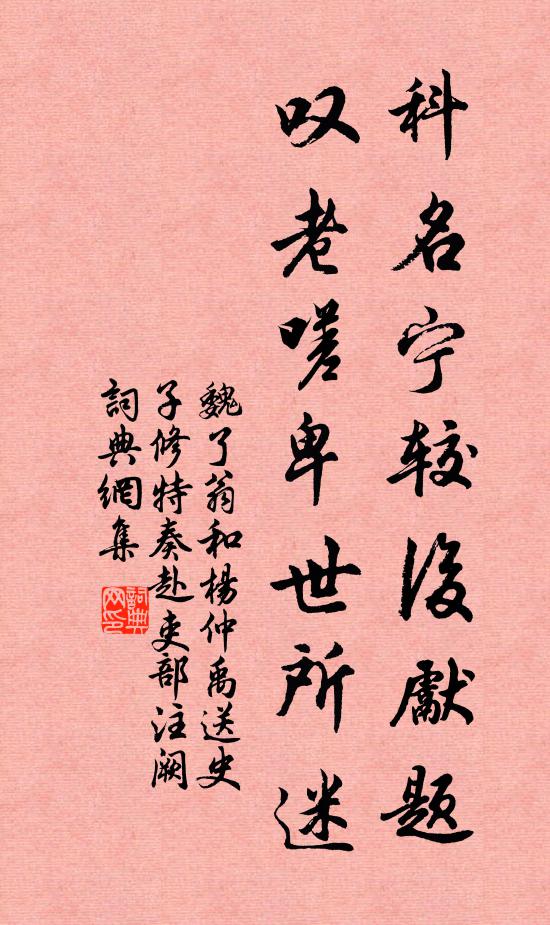 科名宁较后献题
叹老嗟卑世所迷
魏了翁和楊仲禹送史
子修特奏赴吏部注阙
詞典網集
詞典网印